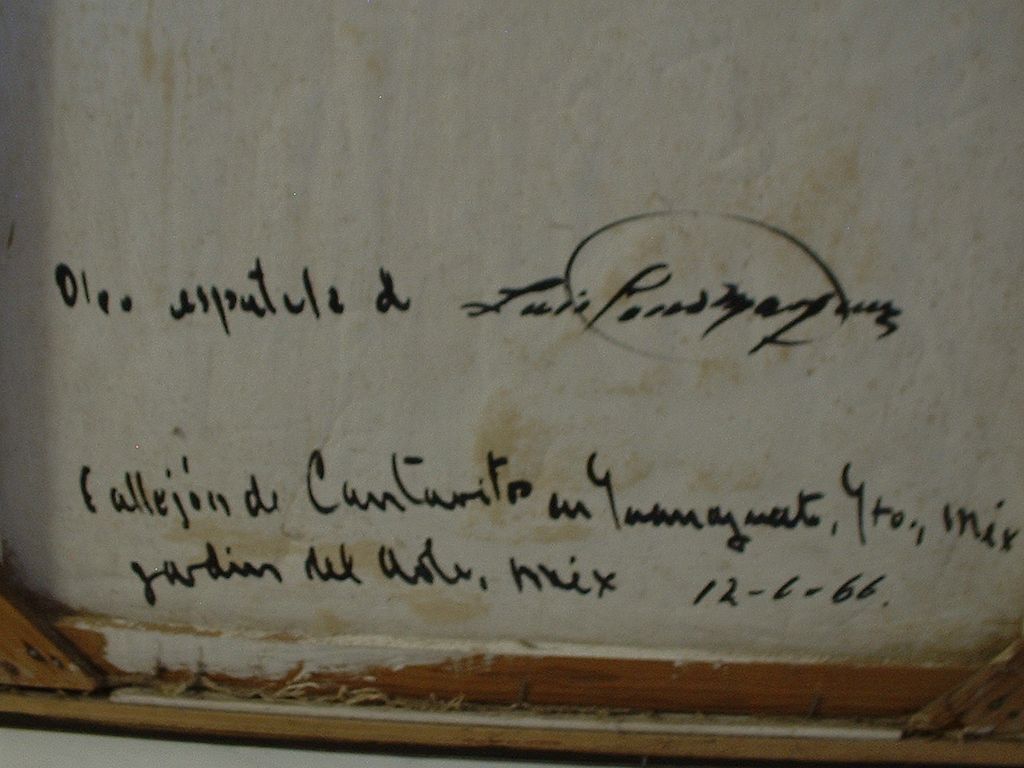 Oleo espatula d Luis
Callejón de Cantaritos en Guanajuato, Gto., Méx
jardin del Arte, Méx 12-6-66.